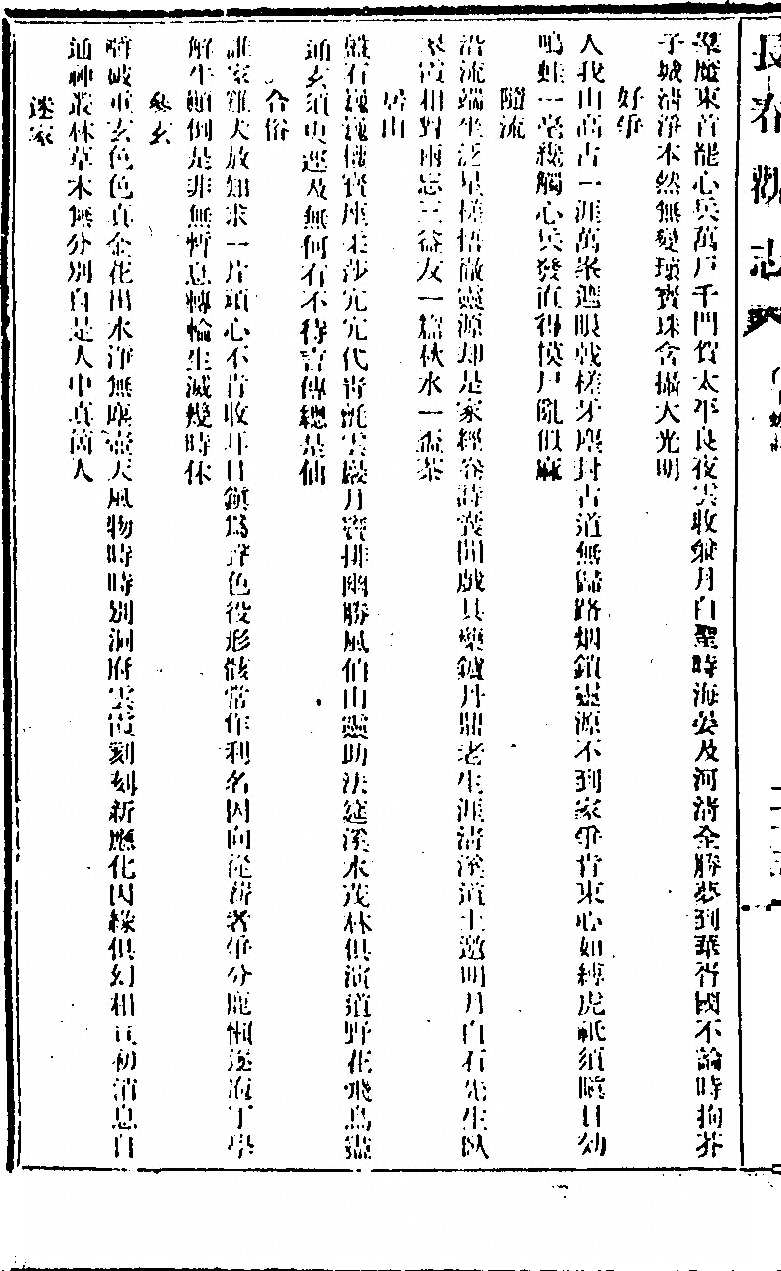 長春觀志
東首能心兵萬戶千門賀太平良夜雲收級月白聖時海晏及河清全勝夢到華胥國不論時拘芥
子城清淨本然無變壞寶珠含攝大光明
好爭
人我山高古一涯萬眾遮眼戟槎牙塵封古道無歸路烟鎖靈源不到家爭肯束心如縛虎祇須瞋目効
鳴蛙一毫纔觸心兵發直得橫尸亂似麻
隨流
沿流端坐泛星槎悟徹靈源却是家經卷詩囊閒戲具藥鑪丹鼎老生涯清溪道士邀明月白石先生臥
霞相對兩忘三益友一甌秋水一盃茶
居山
盤石巍巍寶座宂宂代青氈雲巖月排幽勝風伯山靈助法筵溪水茂林俱演道野花飛鳥盡
通玄須更運及無何有不待言傳總是仙
合俗
誰家雞犬放知求一片頑心不肯收耳目鎮爲聲色役形骸常作利名囚向從者爭分鹿懶逐海丁學
解牛顛倒是非無暫息轉輪生滅幾時休
玄
破重玄色色真金花出水淨無塵壺天風物時時別洞府雲霞刻刻新應化因緣俱幻相初消息自
通神叢林草木無分別自是人中真箇人
迷家